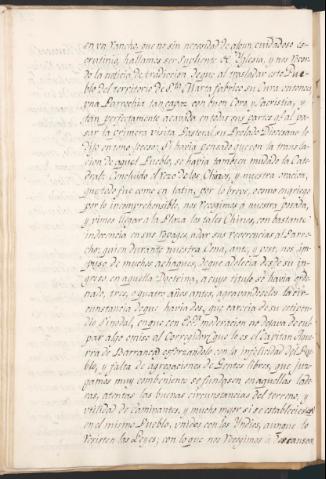 en un Rancho, que no sin necesidad de algun cuidadoso es-
crutinio, hallamos ser Supliente de Yglesia, y nos recor-
do la noticia de tradicion de que al trasladar este Pue-
blo del territorio de Sta. Marta fabricó su Cura entonces
una Parrochia tan capaz con buen Coro, y Sacristia, y
tan perfectamente acavada en todas sus partes q.e al pa-
sar la primera visita Pastoral su Prelado Diocesano le
dijo en tono jocoso: Si havia pensado que con la transla-
cion de aquel Pueblo, se havia tambien mudado la Cate-
dral: Concluido el rezo de los Chinos, y nuestra oracion,
que todo fue como en latin, por lo breve, ò como en griego
por lo incomprehensible, nos recogimos a nuestra posada,
y vimos llegar a la Plaza los tales Chinos, con bastante
indecencia en sus trages, a dar sus reverencias al Parro-
cho; quien durante nuestra Cena, ante, y post, nos im-
puso de muchos achaques, de que adolecia desde su in-
greso en aquella Doctrina, a cuyo titulo se havia orde-
nado, tres, o quatro años antes, agravandoselos la cir-
cunstancia de que havia dos, que carecia de su estipen-
dio Synodal, en que con moderacion no dejava de cul-
par algo omiso al Corregidor, que lo es el Capitan
de Barrancas esforzandolo con la infelicidad del Pue-
blo, y falta de agregaciones de Gentes libres, que juz-
gamos muy combeniente se fundasen en aquellas lade-
ras, atentas las buenas circunstancias del terreno, y
utilidad de Caminantes, y mucho mejor si se estableciesen
en el mismo Pueblo, unidos con los Yndios, aunque lo
resisten las Leyes; con lo que nos recogimos a descansar